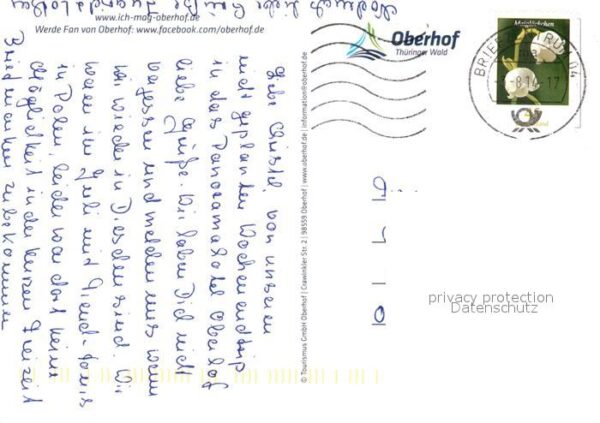 www.ich-mag-oberhof.de
Werde Fan von Oberhof: www.facebook.com/oberhof.de
Oberhof
Thüringer Wald
Maiglöckchen
BRIEFZENTRUM 04
8.14-17
Liebe Christel, von unserem
nicht geplanten Wochenendtrip
in das Panoramahotel Oberhof
liebe Grüße. Wir haben Dich nicht
vergessen und melden uns wenn
wir wieder in Dresden sind. Wir
waren im Juli mit
in Polen, leider war dort keine
Möglichkeit in der kurzen Freizeit
Briefmarken zu bekommen
Nochmals liebe Grüße
© Tourismus GmbH Oberhof | Crawinkler Str. 2 | 98559 Oberhof | information@oberhof.de | www.oberhof.de
privacy protection
Datenschutz